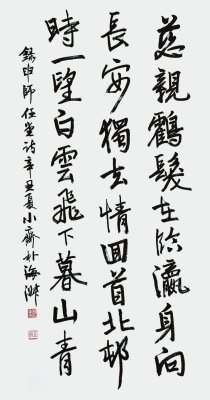 慈親鶴髮在臨瀛身向
長安獨去情回首北邨
時一望白雲飛下暮山青
錄申師任堂詩辛丑夏小齋朴海